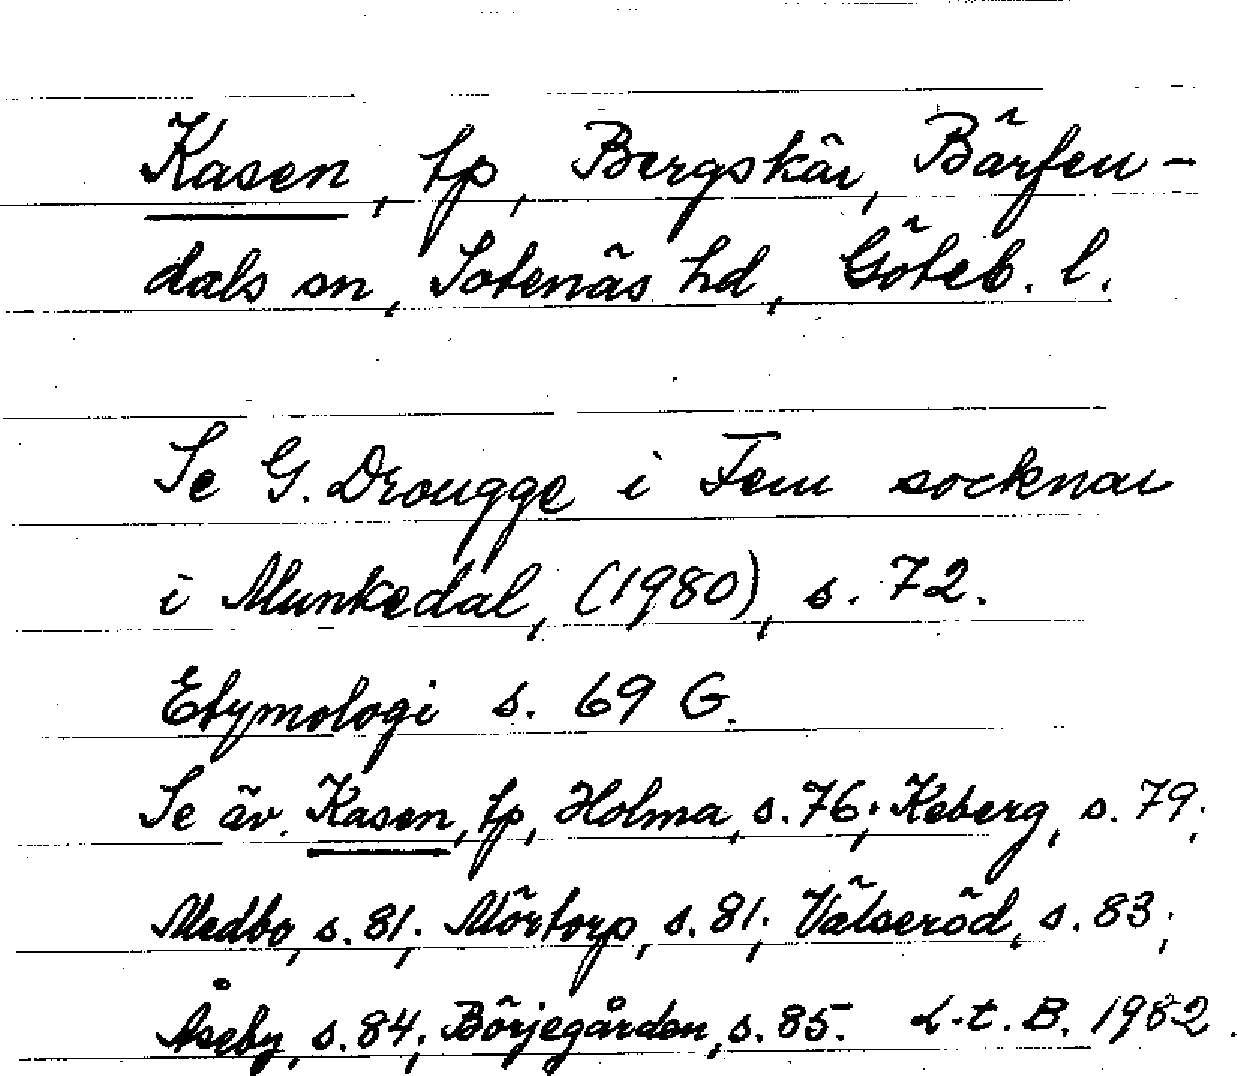 Kasen, tp, Bergskär, Bärfen-
dals sn, Sotenäs hd, Göteb. l.
Se G. Drougge i Fem socknar
i Munkedal, (1980), s. 72.
Etymologi s. 69 G.
Se äv. Kasen, tp, Holma, s. 76; Keberg, s. 79;
Medbo, s. 81; Mörtorp, s. 81; Välseröd, s. 83;
Åseby, s. 84; Börjegården, s. 85. L.t. B. 1982.